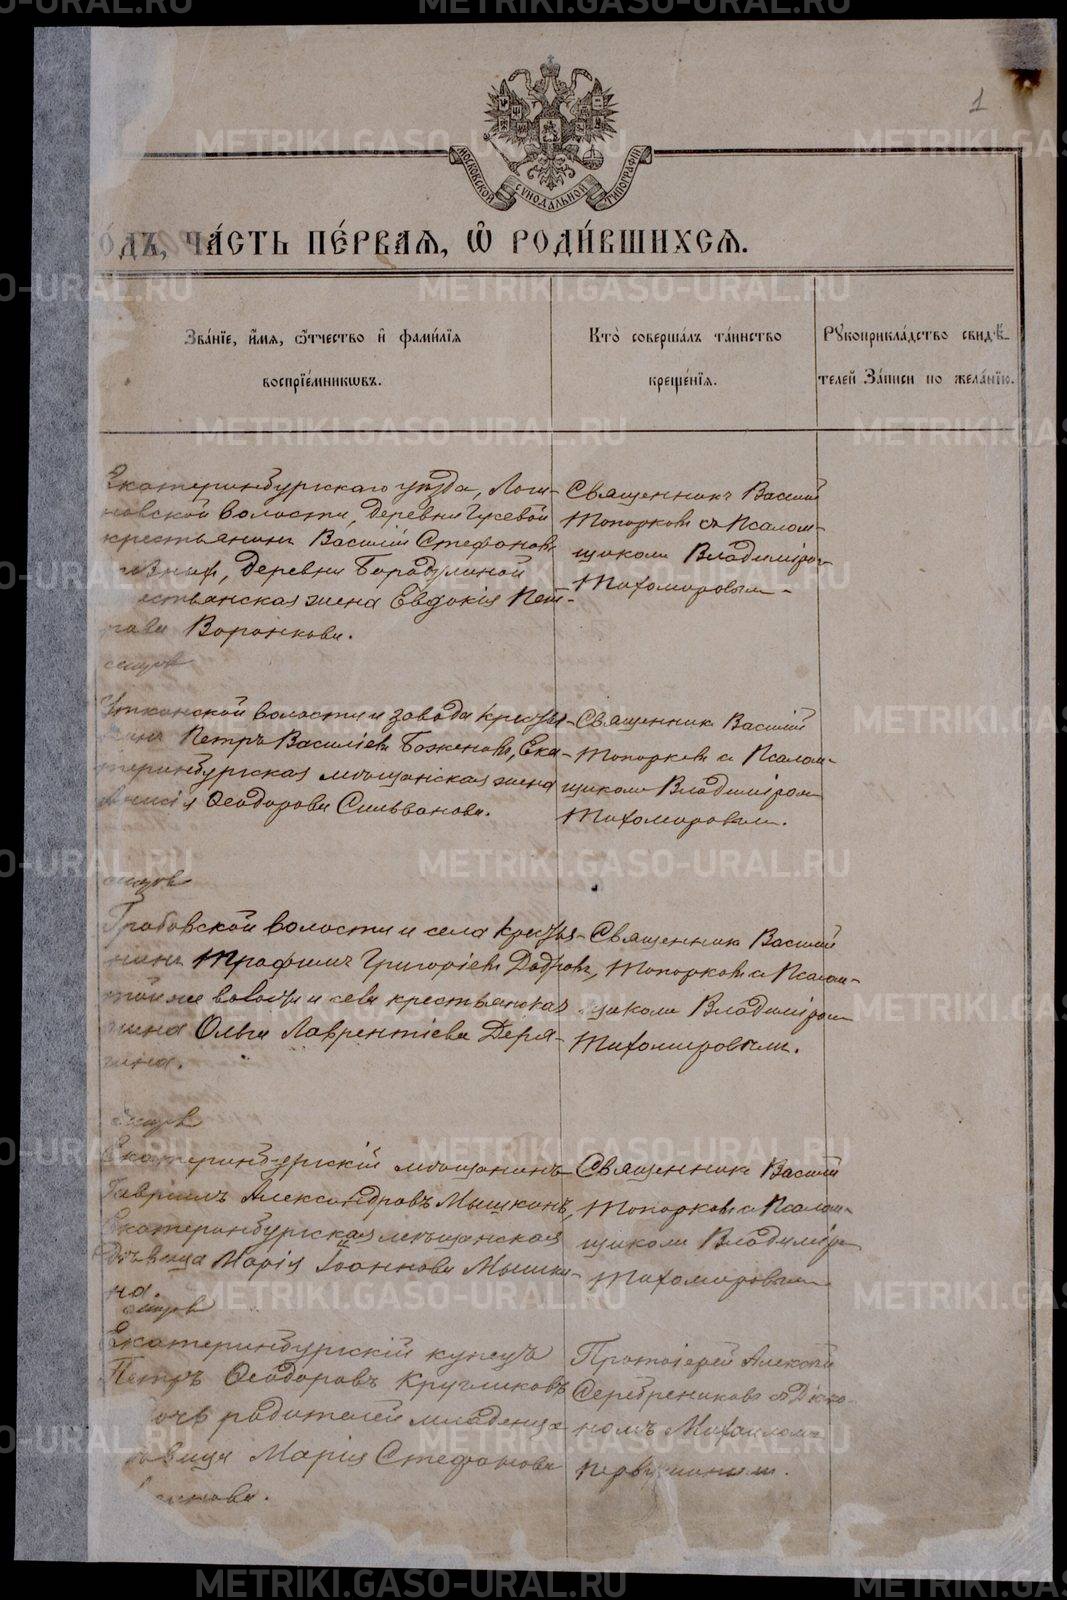 1
МОСКОВСКОЙ СѴНОДАЛЬНОЙ ТИПОГРАФІИ
О́ДЪ, ЧА́СТЬ ПЕ́РВАЯ, Ѽ РОДИ́ВШИХСЯ.
Зва́нїе, и҆́мя, ѻ҆́тчество и҆ фами́лїя
воспрїе́мникѡвъ.
Кто̀ соверша́лъ та́инство
креще́нїя.
Рꙋкоприкла́дство свидѣ́-
телей За́писи по жела́нїю.
Екатеринбургскаго уѣзда, Логи-
новской волости, деревни Гусевой
крестьянинъ Василій Стефановъ
деревни Бородулиной
жена Евдокія Пет-
рова Воронкова.
Священникъ Василій
Топорковъ съ Псалом-
щикомъ Владиміром
Тихомировым.
Уткинской волости и завода кресть-
Петръ Василіевъ Боженовъ, Ека-
теринбургская мѣщанская жена
Ѳеодорова Сильванова.
Священникъ Василій
Топорковъ съ Псалом-
щикомъ Владиміром
Тихомировым.
Грабовской волости и села кресть-
нинъ Трофимъ Григоріевъ
той же волости и села крестьянская
жена Ольга Лаврентіева Деря-
гина.
Священникъ Василій
Топорковъ съ Псалом-
щикомъ Владиміром
Тихомировым.
Екатеринбургскій мѣщанинъ
Гавріилъ Александровъ Мышкинъ,
Екатеринбургская мѣщанская
дѣвица Марія Іоаннова Мышки-
на.
Священникъ Василій
Топорковъ съ Псалом-
щикомъ Владимір
Тихомировым
Екатеринбургскій купецъ
Петръ Ѳеодоровъ Кругликовъ
дочь родителей младенца
дѣвица Марія Стефанова
Протоіерей Алексій
Серебрениковъ съ Діако-
номъ Михаиломъ
Первушиным.